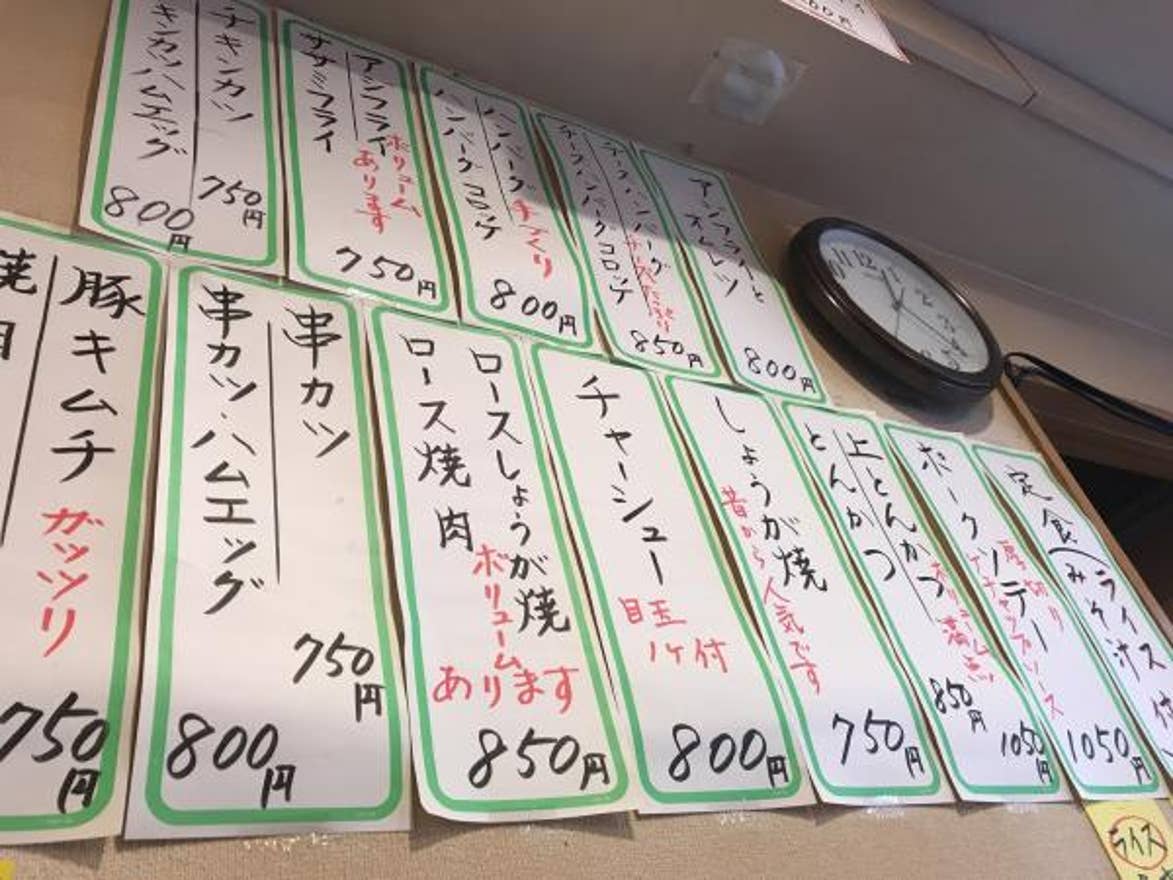 アジフライと
オムレツ
800円
チーズハンバーグ
チーズハンバーグコロッケ
850円
ハンバーグ 手づくり
ハンバーグコロッケ
800円
アジフライ
ササミフライ
ボリューム
あります
750円
チキンカツ
750円
チキンカツハムエッグ
800円
定食(ライス
みそ汁
ポークソテー
厚切り
1050円
上とんかつ
1050円
とんかつ
850円
しょうが焼
昔から人気です
750円
チャーシュー
目玉
1ケ付
800円
ロースしょうが焼
ロース焼肉
ボリューム
あります
850円
串カツ
750円
串カツ・ハムエッグ
800円
豚キムチ
ガッツリ
750円
焼肉
ライス